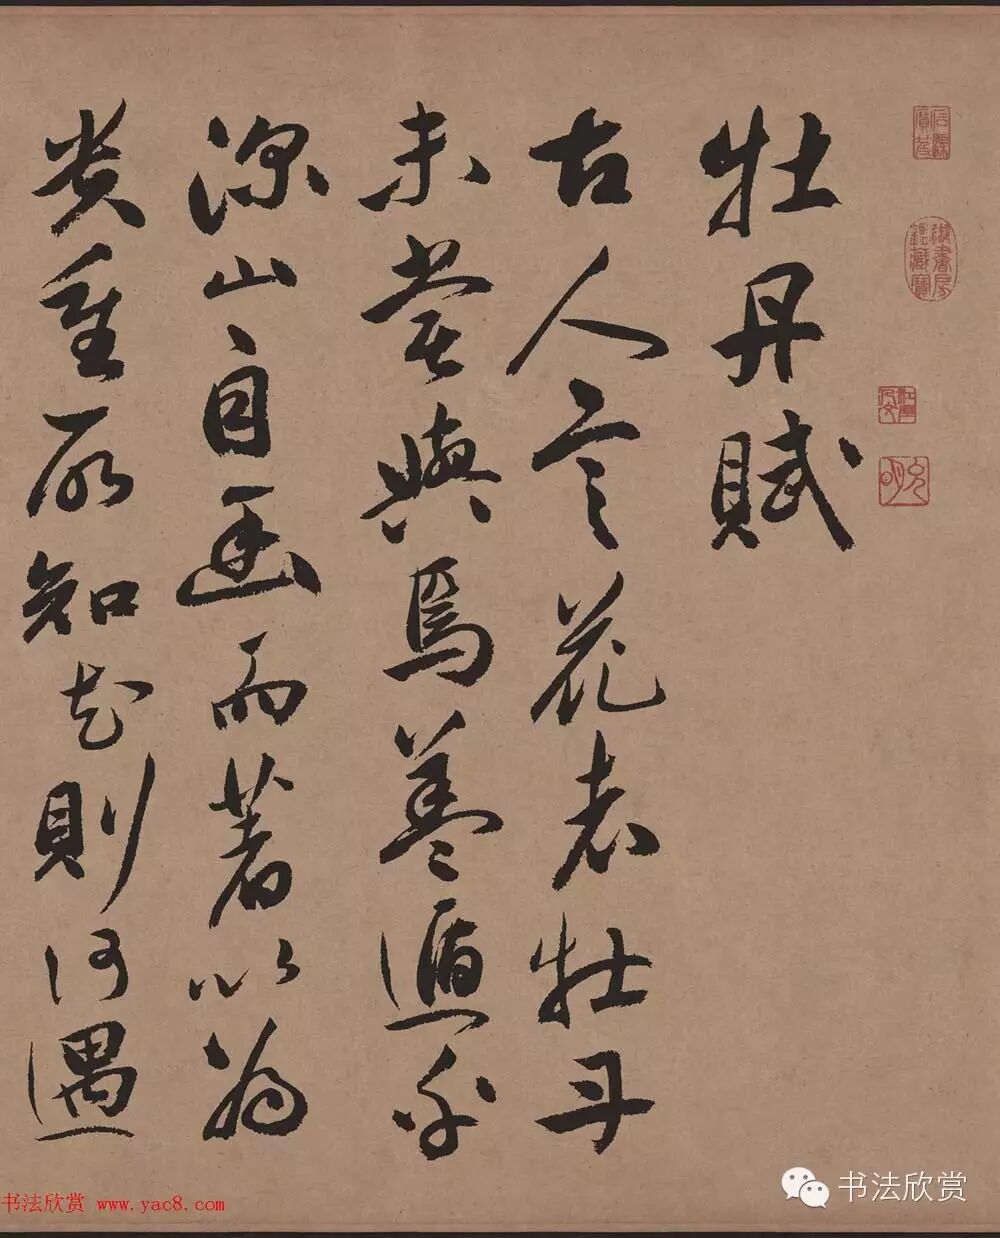 牡丹賦
古人言花者牡丹
未嘗與焉蓋遁乎
深山自幽而著以為
貴重所知花則何遇
书法欣赏 www.yac8.com
书法欣赏